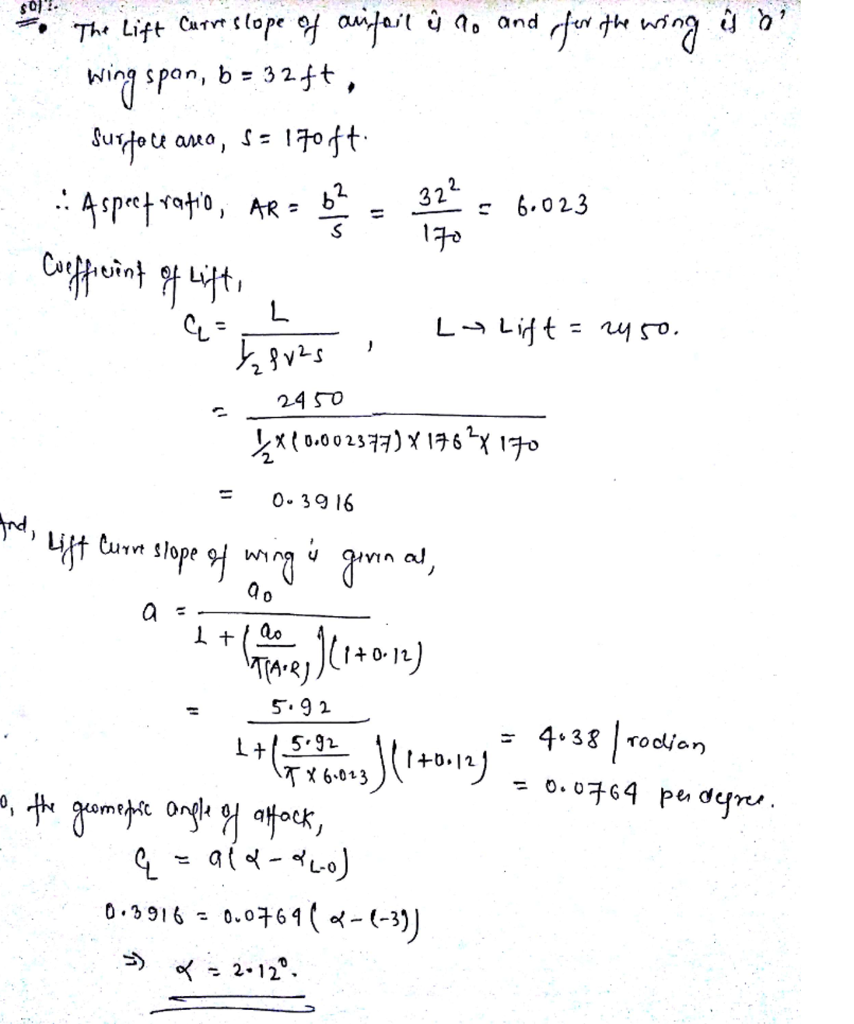 solⁿ:
The Lift Curve slope of airfoil is a₀ and for the wing is 'a'
wing span, b = 32ft,
Surface area, S = 170ft.
∴ Aspect ratio, AR = b²/S = 32²/170 = 6.023
Coefficient of Lift,
C_L = L / ½ρv²s , L → Lift = 2450.
= 2450 / ½×(0.002377)×176²×170
= 0.3916
And, Lift Curve slope of wing is given as,
a = a₀ / 1+(a₀/π(A.R))(1+0.12)
= 5.92 / 1+(5.92/π×6.023)(1+0.12) = 4.38/radian
= 0.0764 per degree.
o, the geometric angle of attack,
C_L = a(α - α_L=0)
0.3916 = 0.0764(α-(-3))
⇒ α = 2.12°.